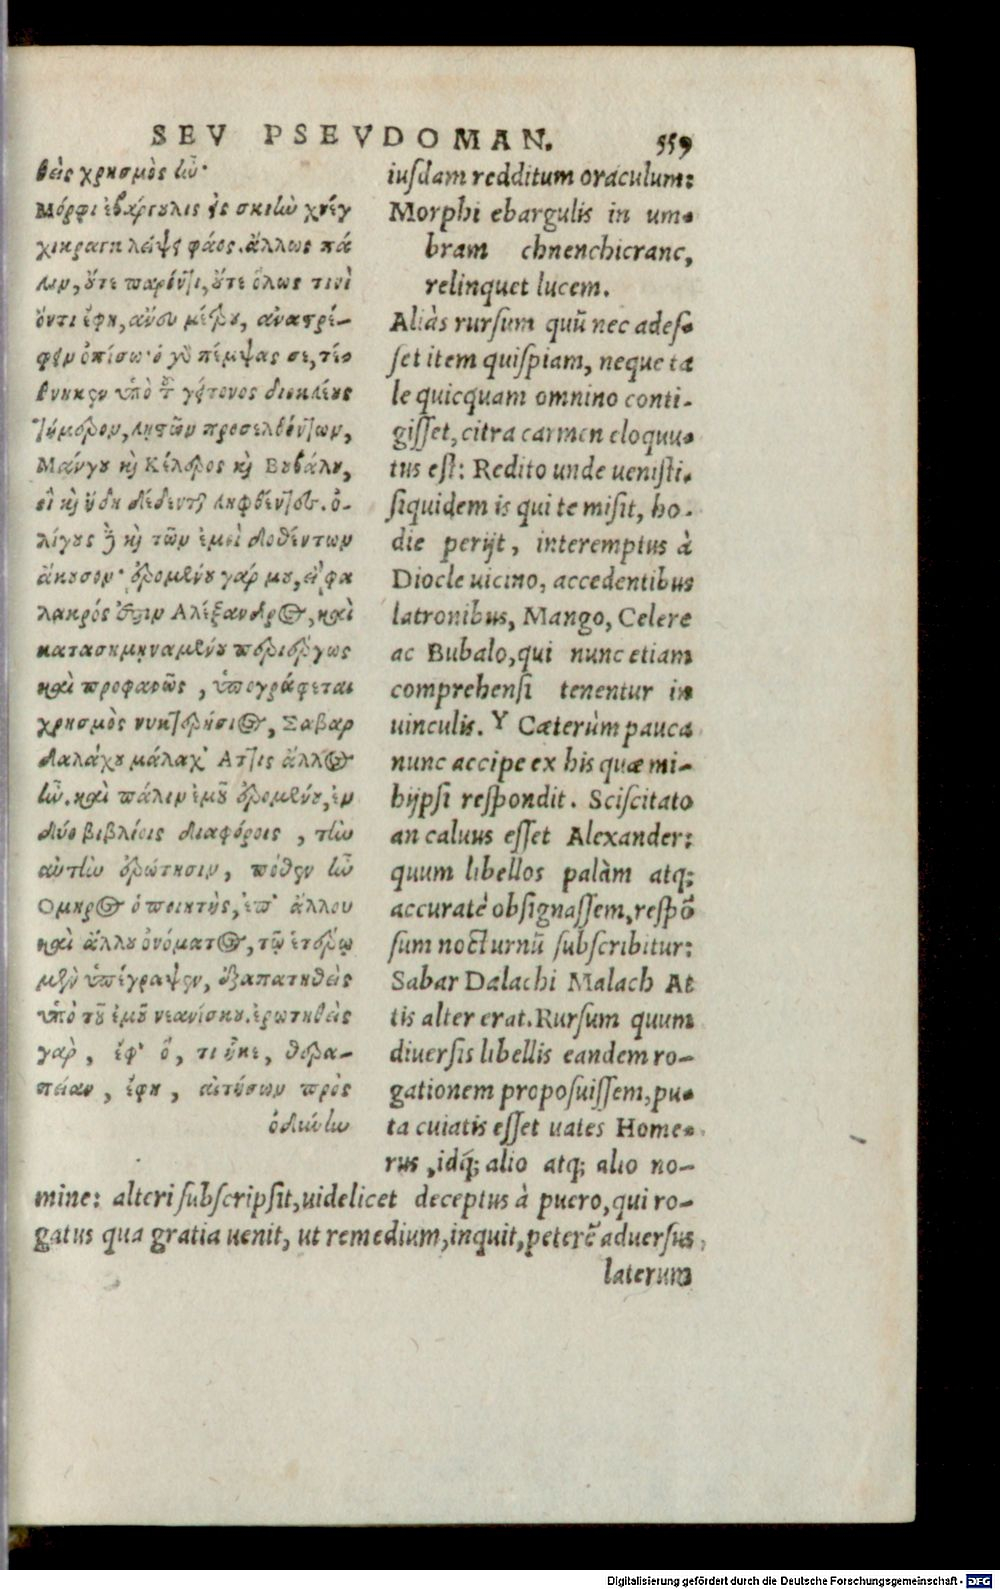 SEV PSEVDOMAN. 559
θεὶς χρησμὸς ἦν·
Μόρφι ἐβάργουλις εἰς σκιὴν χνέγ
χικραγη λείψει φάος. ἄλλως πά
λιν, οὔτε παρόντι, οὔτε ὅλως τινὶ
ὄντι ἔφη, ἄνευ μέτρου, ἀνατρέ-
φειν ὀπίσω· ὁ γὰρ πέμψας σε, τέ-
θνηκεν ὑπὸ τοῦ γείτονος διοκλέους
τήμερον, λῃστῶν προσελθόντων,
Μάγγου καὶ Κέλερος καὶ Βουβάλου,
οἳ καὶ ἤδη δέδενται ληφθέντες. ὀ-
λίγους δὲ καὶ τῶν ἐμοὶ δοθέντων
ἄκουσον· ἐρομένου γάρ μου, εἰ φα
λακρός ἐστιν Αλέξανδρος, καὶ
κατασημηναμένου περιέργως
καὶ προφανῶς, ὑπογράφεται
χρησμὸς νυκτερήσιος, Σαβαρ
δαλάχου μάλαχ' Αττις ἄλλος
ἦν. καὶ πάλιν ἐμοῦ ἐρομένου, ἐν
δύο βιβλίοις διαφόροις, τὴν
αὐτὴν ἐρώτησιν, πόθεν ἦν
Ομηρος ὁ ποιητὴς, ἐπ' ἄλλου
καὶ ἄλλου ὀνόματος, τῷ ἑτέρῳ
μὲν ὑπέγραψεν, ἐξαπατηθεὶς
ὑπὸ τοῦ ἐμοῦ νεανίσκου. ἐρωτηθεὶς
γὰρ, ἐφ' ὅ, τι ἧκε, θερα-
πείαν, ἔφη, αἰτήσων πρὸς
ὀδύνην
iusdam redditum oraculum:
Morphi ebargulis in um-
bram chnenchicranc,
relinquet lucem.
Aliàs rursum quũ nec adeſ-
ſet item quiſpiam, neque ta
le quicquam omnino conti-
giſſet, citra carmen eloquu-
tus eſt: Redito unde ueniſti.
ſiquidem is qui te miſit, ho-
die perijt, interemptus à
Diocle uicino, accedentibus
latronibus, Mango, Celere
ac Bubalo, qui nunc etiam
comprehenſi tenentur in
uinculis. Y Cæterùm pauca
nunc accipe ex his quæ mi-
hijpſi reſpondit. Sciſcitato
an caluus eſſet Alexander:
quum libellos palàm atq;
accuratè obſignaſſem, reſpõ
ſum nocturnũ ſubſcribitur:
Sabar Dalachi Malach At
tis alter erat. Rurſum quum
diuerſis libellis eandem ro-
gationem propoſuiſſem, pu-
ta cuiatis eſſet uates Home-
rus, idq́; alio atq; alio no-
mine: alteri ſubſcripſit, uidelicet deceptus à puero, qui ro-
gatus qua gratia uenit, ut remedium, inquit, peterẽ aduerſus
laterum
Digitalisierung gefördert durch die Deutsche Forschungsgemeinschaft - DFG